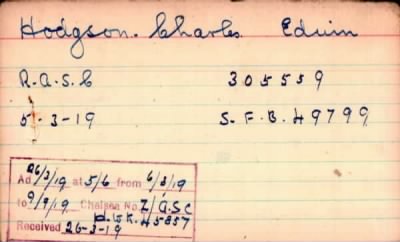 Hodgson. Charles Edwin
R.A.S.C 305559
5-3-19 S.F.B. 49799
26/3/19
Ad at 5/6 from 6/3/19
to 9/9/19 Chelsea No. Z/ASC
P.W.K. 45857
Received 26-3-19